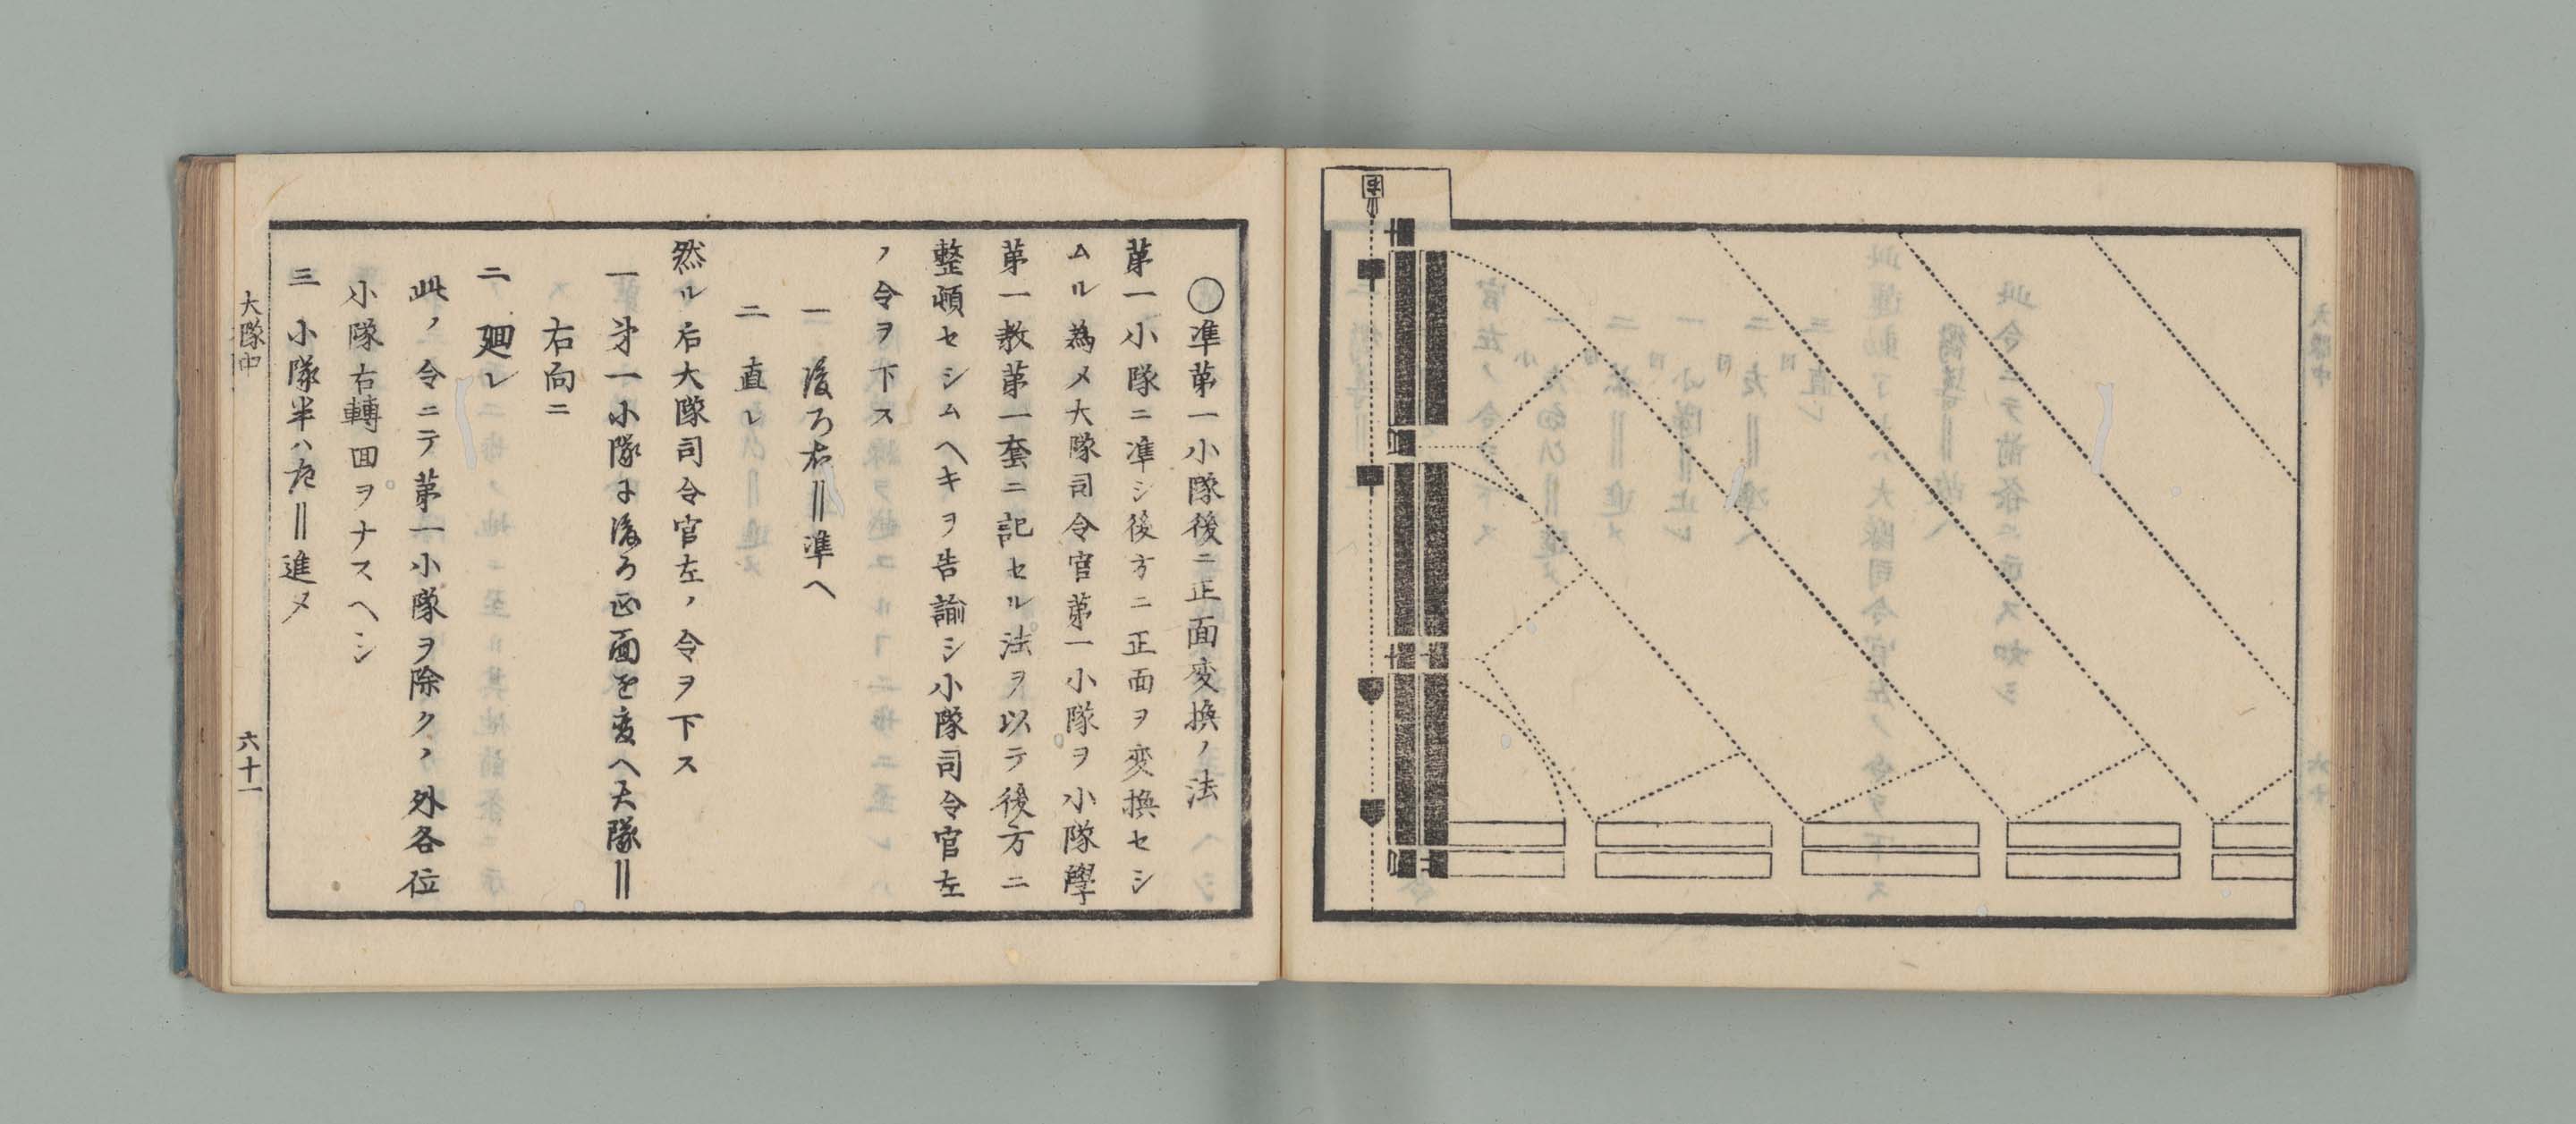 ○準第一小隊後ニ正面変換ノ法
第一小隊ニ準シ後方ニ正面ヲ変換セシ
ムル為メ大隊司令官第一小隊ヲ小隊學
第一教第一套ニ記セル法ヲ以テ後方ニ
整頓セシムヘキヲ告諭シ小隊司令官左
ノ令ヲ下ス
一 後ろ右‖準ヘ
二 直レ
然ル后大隊司令官左ノ令ヲ下ス
一 第一小隊よ後ろ正面を変へ大隊‖
右向ニ
二 廻レ
此ノ令ニテ第一小隊ヲ除クノ外各位
小隊右轉回ヲナスヘシ
三 小隊半ハ左‖進メ
大隊中
六十一